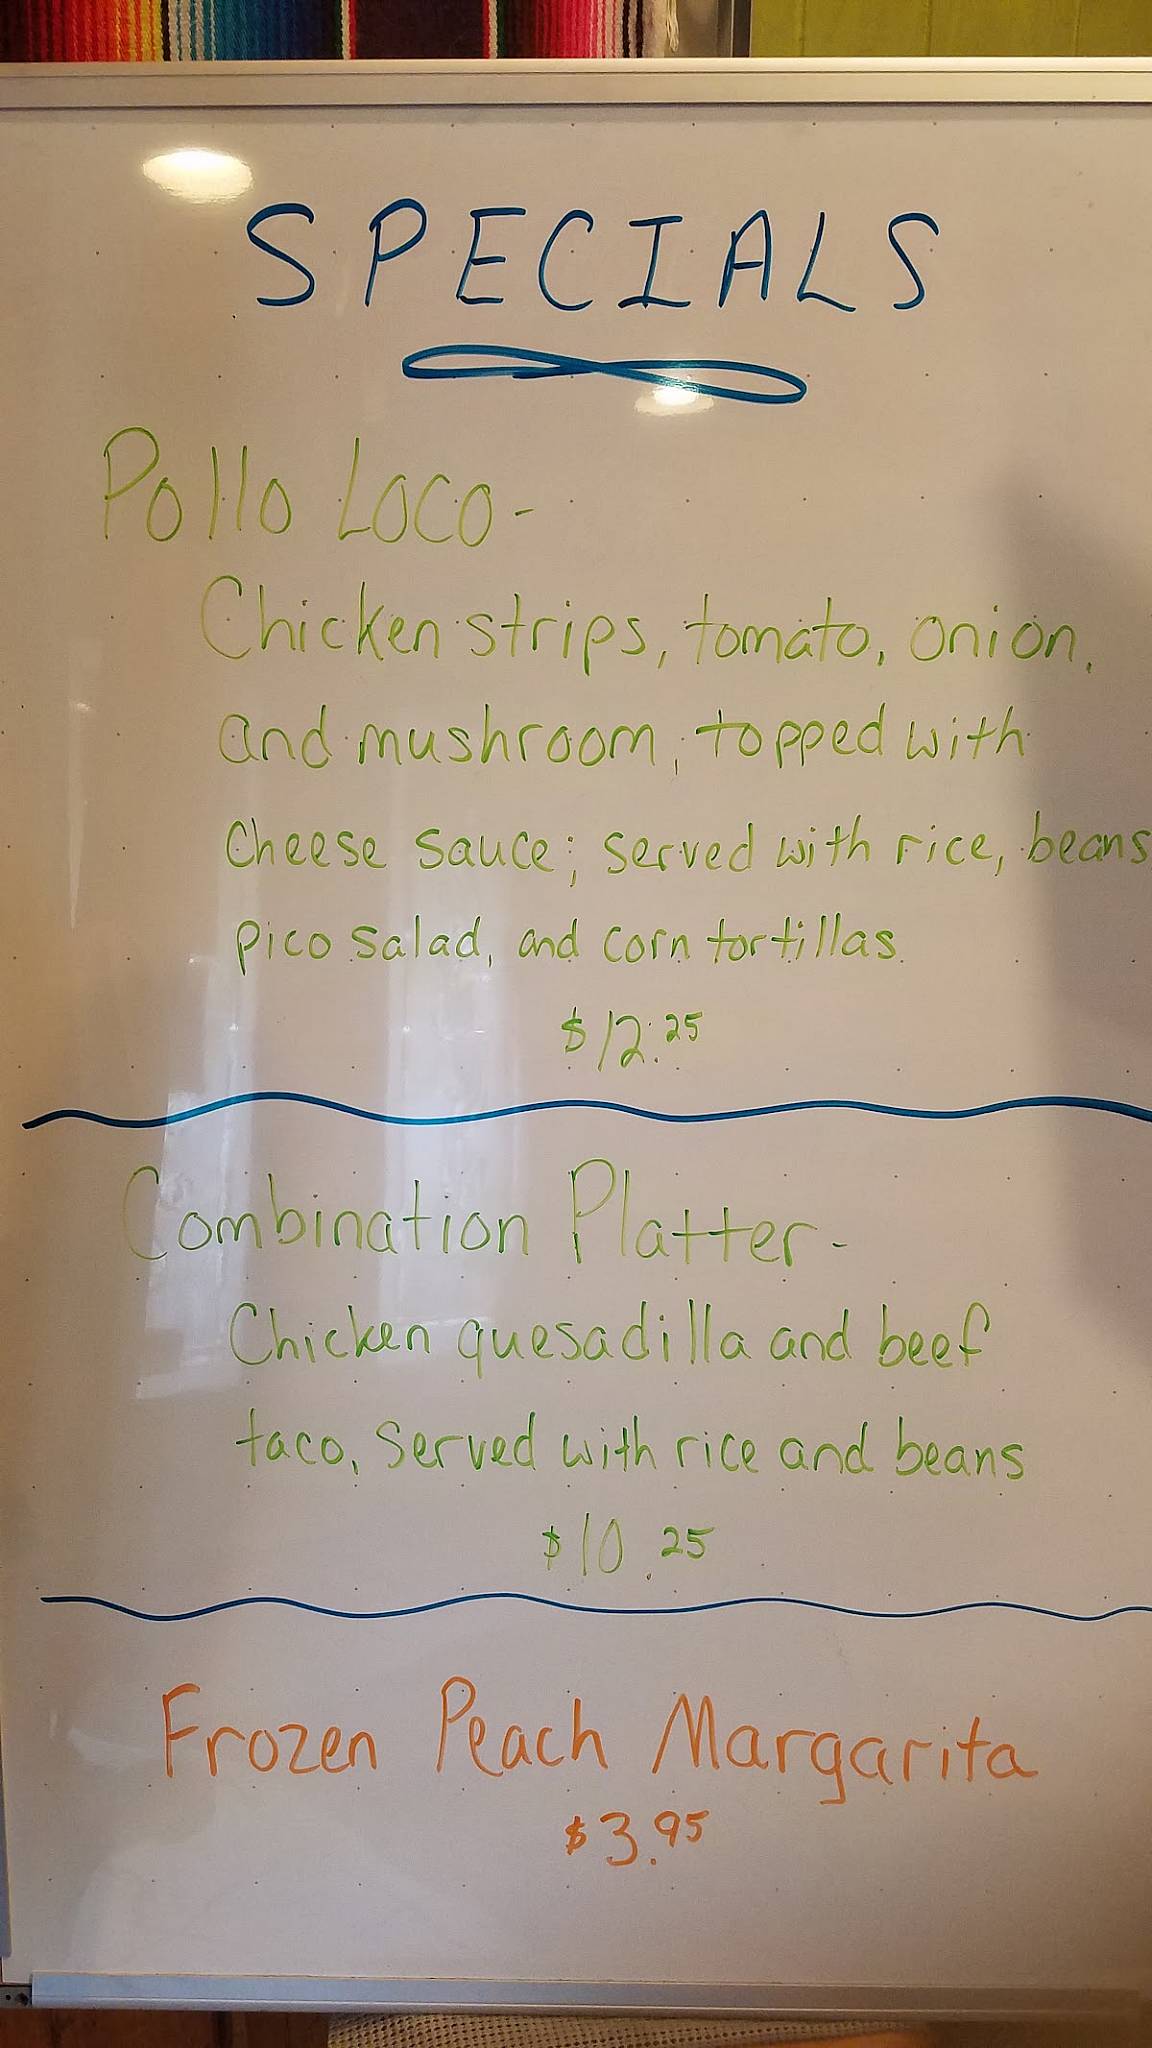 SPECIALS
Pollo Loco-
Chicken strips, tomato, onion,
and mushroom, topped with
cheese sauce; served with rice, beans
pico salad, and corn tortillas.
$12.25
Combination Platter-
Chicken quesadilla and beef
taco, served with rice and beans
$10.25
Frozen Peach Margarita
$3.95